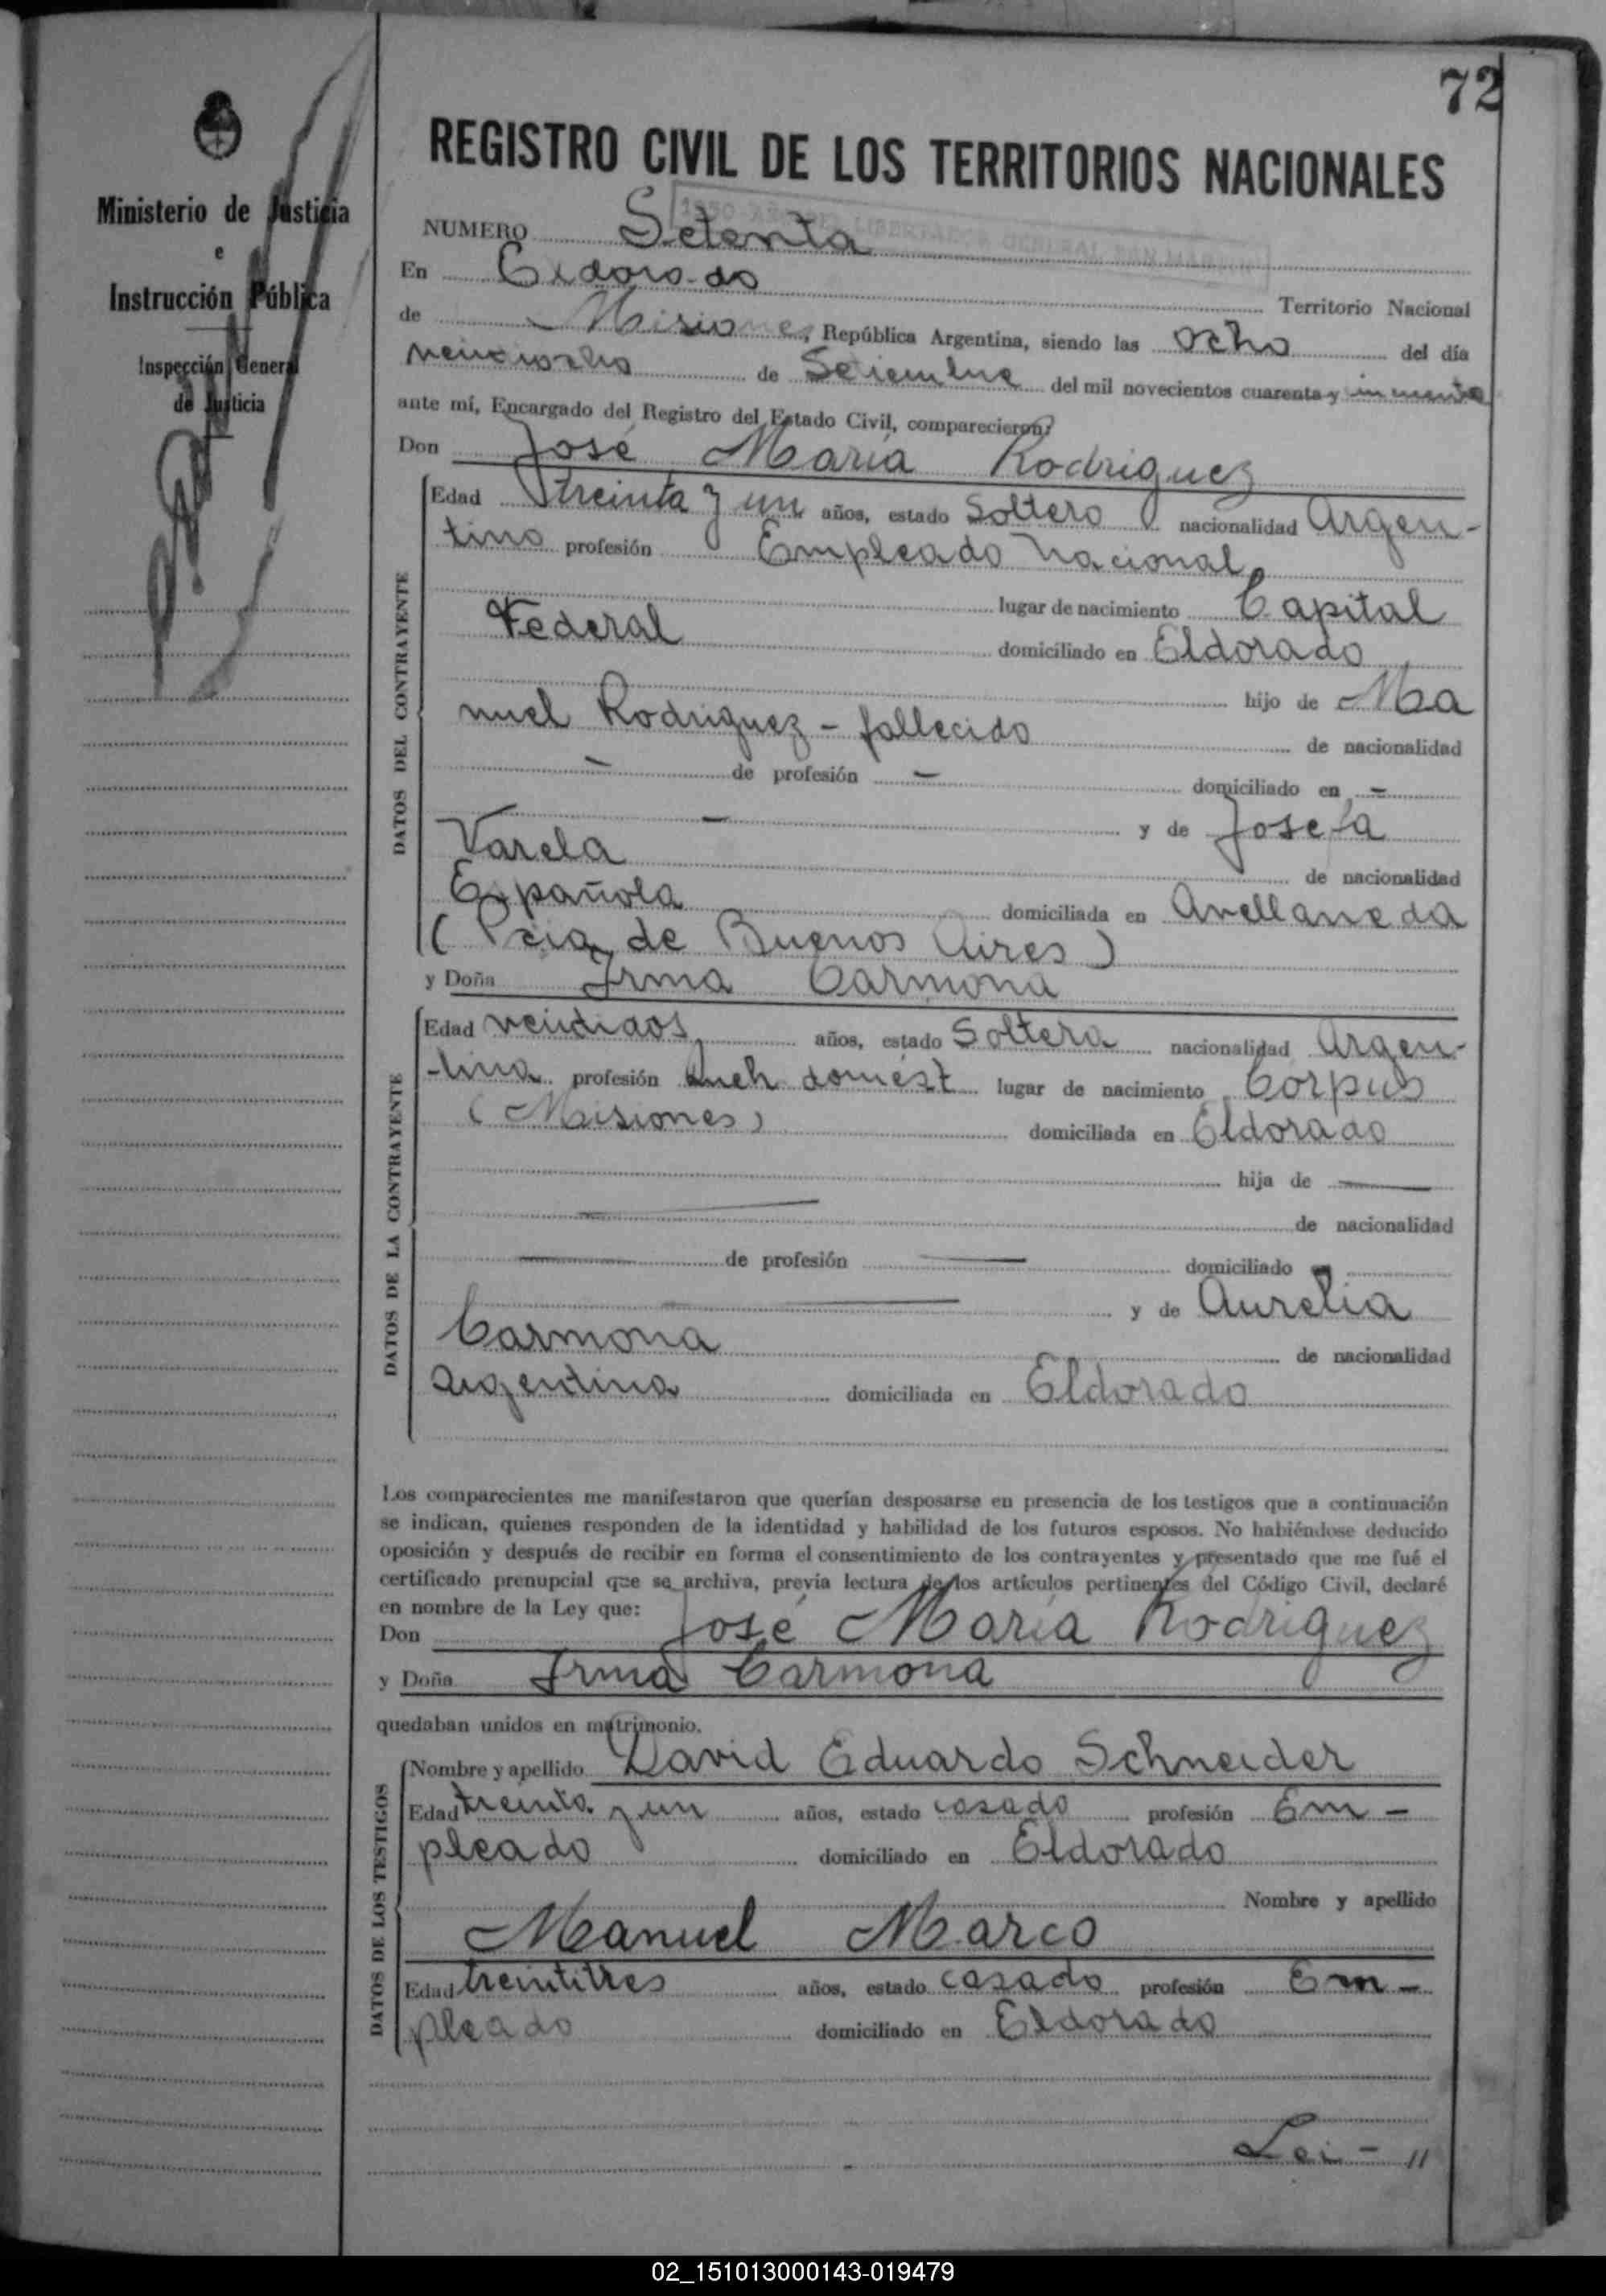 72
Ministerio de Justicia
e
Instrucción Pública
Inspección General
de Justicia
REGISTRO CIVIL DE LOS TERRITORIOS NACIONALES
1950 AÑO DEL LIBERTADOR GENERAL SAN MARTIN
NUMERO Setenta
En Eldorado
Territorio Nacional
de Misiones, República Argentina, siendo las ocho del día
veintiocho de Setiembre del mil novecientos cuarenta y
ante mí, Encargado del Registro del Estado Civil, comparecieron:
Don José María Rodriguez
DATOS DEL CONTRAYENTE
Edad treinta y un años, estado Soltero nacionalidad Argen-
tino profesión Empleado Nacional
lugar de nacimiento Capital
Federal domiciliado en Eldorado
hijo de Ma
nuel Rodriguez - fallecido de nacionalidad
- de profesión - domiciliado en -
- y de Josefa
Varela de nacionalidad
Española domiciliada en Avellaneda
(Pcia de Buenos Aires)
y Doña Irma Carmona
DATOS DE LA CONTRAYENTE
Edad veintidos años, estado Soltera nacionalidad Argen-
tina profesión Queh domést lugar de nacimiento Corpus
(Misiones) domiciliada en Eldorado
hija de —
— de nacionalidad
— de profesión — domiciliado
— y de Aurelia
Carmona de nacionalidad
argentina domiciliada en Eldorado
Los comparecientes me manifestaron que querían desposarse en presencia de los testigos que a continuación
se indican, quienes responden de la identidad y habilidad de los futuros esposos. No habiéndose deducido
oposición y después de recibir en forma el consentimiento de los contrayentes y presentado que me fué el
certificado prenupcial que se archiva, previa lectura de los artículos pertinentes del Código Civil, declaré
en nombre de la Ley que:
Don José María Rodriguez
y Doña Irma Carmona
quedaban unidos en matrimonio.
DATOS DE LOS TESTIGOS
Nombre y apellido David Eduardo Schneider
Edad treinta y un años, estado casado profesión Em-
pleado domiciliado en Eldorado
Nombre y apellido
Manuel Marco
Edad treintitres años, estado casado profesión Em-
pleado domiciliado en Eldorado
Lei - //
02_151013000143-019479